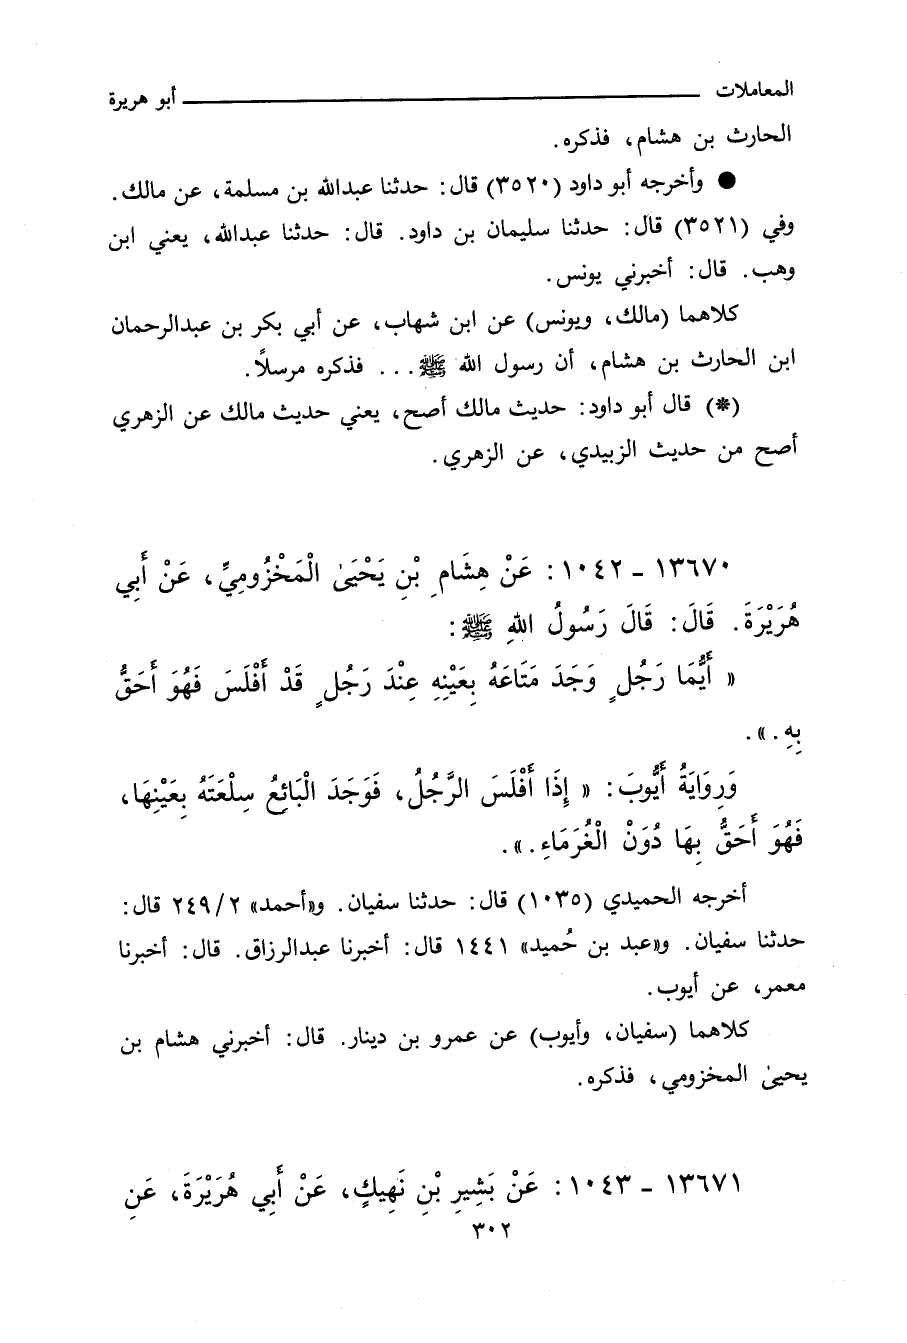 المعاملات ــــــــــــــــــــ أبو هريرة
الحارث بن هشام، فذكره.
● وأخرجه أبو داود (٣٥٢٠) قال: حدثنا عبدالله بن مسلمة، عن مالك.
وفي (٣٥٢١) قال: حدثنا سليمان بن داود. قال: حدثنا عبدالله، يعني ابن
وهب. قال: أخبرني يونس.
كلاهما (مالك، ويونس) عن ابن شهاب، عن أبي بكر بن عبدالرحمان
ابن الحارث بن هشام، أن رسول الله ﷺ... فذكره مرسلاً.
(*) قال أبو داود: حديث مالك أصح، يعني حديث مالك عن الزهري
أصح من حديث الزبيدي، عن الزهري.
١٣٦٧٠ - ١٠٤٢: عَنْ هِشَامِ بْنِ يَحْيَىٰ الْمَخْزُومِيِّ، عَنْ أَبِي
هُرَيْرَةَ. قَالَ: قَالَ رَسُولُ اللهِ ﷺ:
« أَيُّمَا رَجُلٍ وَجَدَ مَتَاعَهُ بِعَيْنِهِ عِنْدَ رَجُلٍ قَدْ أَفْلَسَ فَهُوَ أَحَقُّ
بِهِ.».
وَرِوَايَةُ أَيُّوبَ: « إِذَا أَفْلَسَ الرَّجُلُ، فَوَجَدَ الْبَائِعُ سِلْعَتَهُ بِعَيْنِهَا،
فَهُوَ أَحَقُّ بِهَا دُونَ الْغُرَمَاءِ.».
أخرجه الحميدي (١٠٣٥) قال: حدثنا سفيان. و«أحمد» ٢٤٩/٢ قال:
حدثنا سفيان. و«عبد بن حُميد» ١٤٤١ قال: أخبرنا عبدالرزاق. قال: أخبرنا
معمر، عن أيوب.
كلاهما (سفيان، وأيوب) عن عمرو بن دينار. قال: أخبرني هشام بن
يحيىٰ المخزومي، فذكره.
١٣٦٧١ - ١٠٤٣: عَنْ بَشِيرِ بْنِ نَهِيكٍ، عَنْ أَبِي هُرَيْرَةَ، عَنِ
٣٠٢